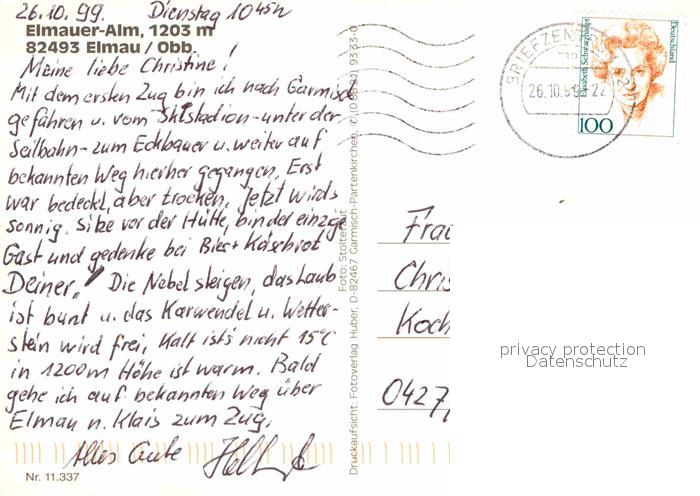 26.10.99. Dienstag 10 45h
Elmauer-Alm, 1203 m
82493 Elmau / Obb.
Meine liebe Christine!
Mit dem ersten Zug bin ich nach Garmisch
gefahren u. vom Skistadion - unter der
Seilbahn - zum Eckbauer u. weiter auf
bekannten Weg hierher gegangen, Erst
war bedeckt, aber trocken, Jetzt wirds
sonnig. Sitze vor der Hütte, bin der einzige
Gast und gedenke bei Bier + Käsebrot
Deiner." Die Nebel steigen, das Laub
ist bunt u. das Karwendel u. Wetter-
stein wird frei, Kalt ists nicht 15°C
in 1200m Höhe ist warm. Bald
gehe ich auf bekannten Weg über
Elmau n. Klais zum Zug.
Alles Gute
Nr. 11.337
Foto: Stoltefaut
Druckaufsicht: Fotoverlag Huber, D-82467 Garmisch-Partenkirchen,
BRIEFZENTRUM
26.10.99-22
Elisabeth Schwarzhaupt
Deutschland
100
Frau
Chris
Koch
0427
privacy protection
Datenschutz